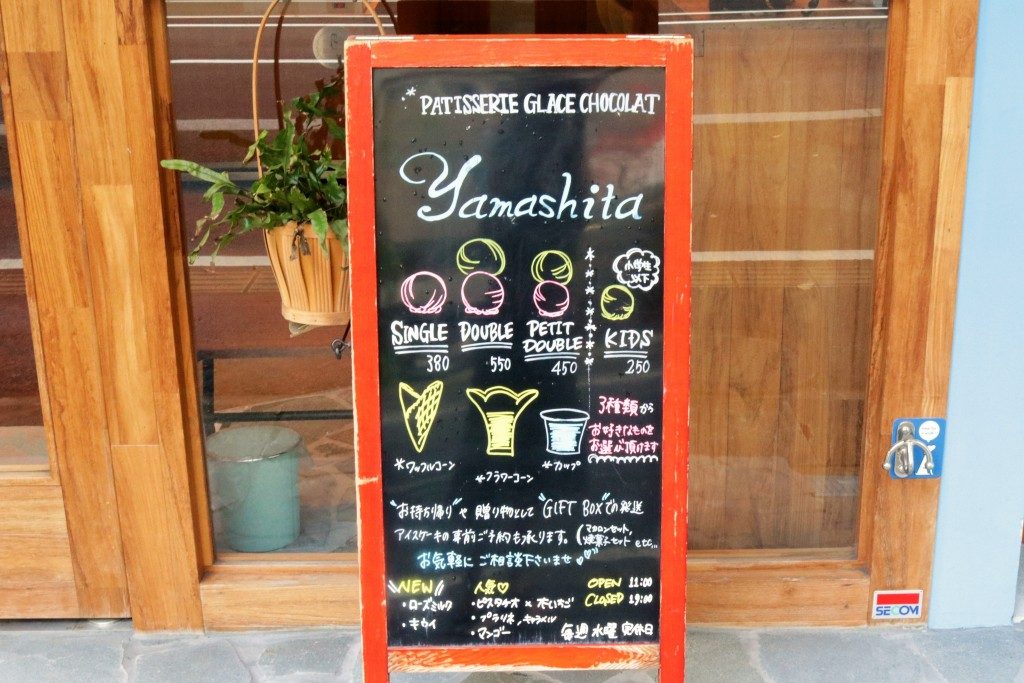 PATISSERIE GLACE CHOCOLAT
Yamashita
小学生
以下
SINGLE
380
DOUBLE
550
PETIT
DOUBLE
450
KIDS
250
*ワッフルコーン
*フラワーコーン
*カップ
3種類から
お好きなものを
お選び頂けます
"お持ち帰り"や 贈り物として "GIFT BOX"での発送
アイスケーキの事前ご予約も承ります。(マカロンセット、
焼菓子セット etc...
お気軽に ご相談下さいませ♡♡"
NEW
・ローズミルク
・キウイ
人気♡
・ピスタチオ × 木いちご
・プラリネ、キャラメル
・マンゴー
OPEN 11:00
CLOSED 19:00
毎週 水曜 定休日
SECOM